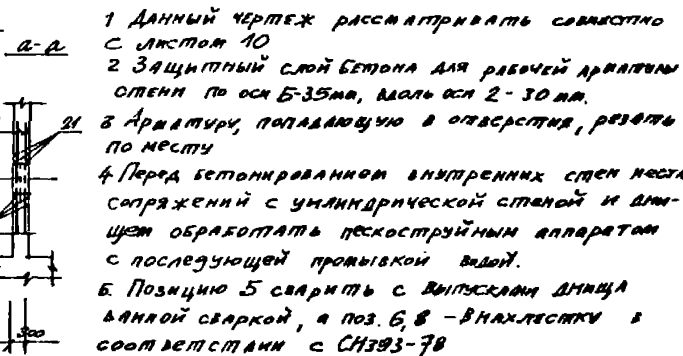 1 Данный чертеж рассматривать совместно
с листом 10
а-а
2 Защитный слой бетона для рабочей арматуры
стени по оси Б-35мм, вдоль оси 2-30 мм.
21
3 Арматуру, попадающую в отверстия, резать
по месту
4 Перед бетонированием внутренних стен места
сопряжений с цилиндрической стеной и дни-
щем обработать пескоструйным аппаратом
с последующей промывкой водой.
5. Позицию 5 сварить с выпусками днища
ванной сваркой, а поз. 6, 8 - внахлестку в
соответствии с СН393-78
300